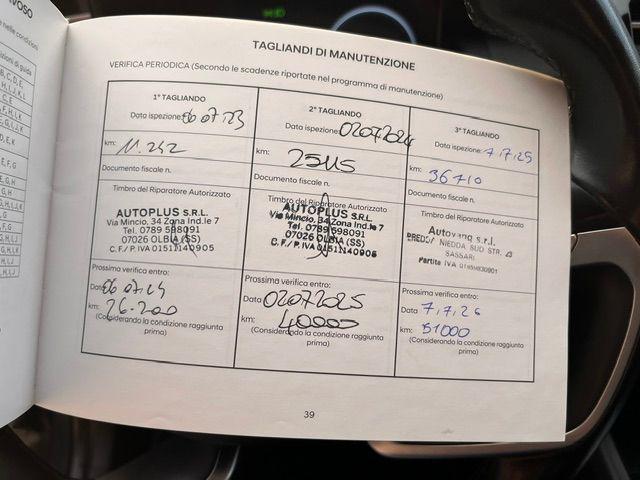 VOSO
nelle condizioni
zioni di guida
B, C, D, E, I
E, F, G
TAGLIANDI DI MANUTENZIONE
VERIFICA PERIODICA (Secondo le scadenze riportate nel programma di manutenzione)
1° TAGLIANDO
Data ispezione: 06 07 23
km: 11.242
Documento fiscale n.
Timbro del Riparatore Autorizzato
AUTOPLUS S.R.L.
Via Mincio, 34 Zona Ind.le 7
Tel. 0789 598091
07026 OLBIA (SS)
C.F./P. IVA 01511140905
Prossima verifica entro:
Data 06 07 24
km: 26.200
(Considerando la condizione raggiunta
prima)
2° TAGLIANDO
Data ispezione: 02072024
km: 25115
Documento fiscale n.
Timbro del Riparatore Autorizzato
AUTOPLUS S.R.L.
Via Mincio, 34 Zona Ind.le 7
Tel. 0789 598091
07026 OLBIA (SS)
C.F./P. IVA 01511140905
Prossima verifica entro:
Data 02072025
km: 40000
(Considerando la condizione raggiunta
prima)
3° TAGLIANDO
Data ispezione: 7.7.25
km: 36710
Documento fiscale n.
Timbro del Riparatore Autorizzato
s.r.l.
PREDDA NIEDDA SUD STR.
SASSARI
Partita IVA
Prossima verifica entro:
Data 7.7.26
km: 51000
(Considerando la condizione raggiunta
prima)
39